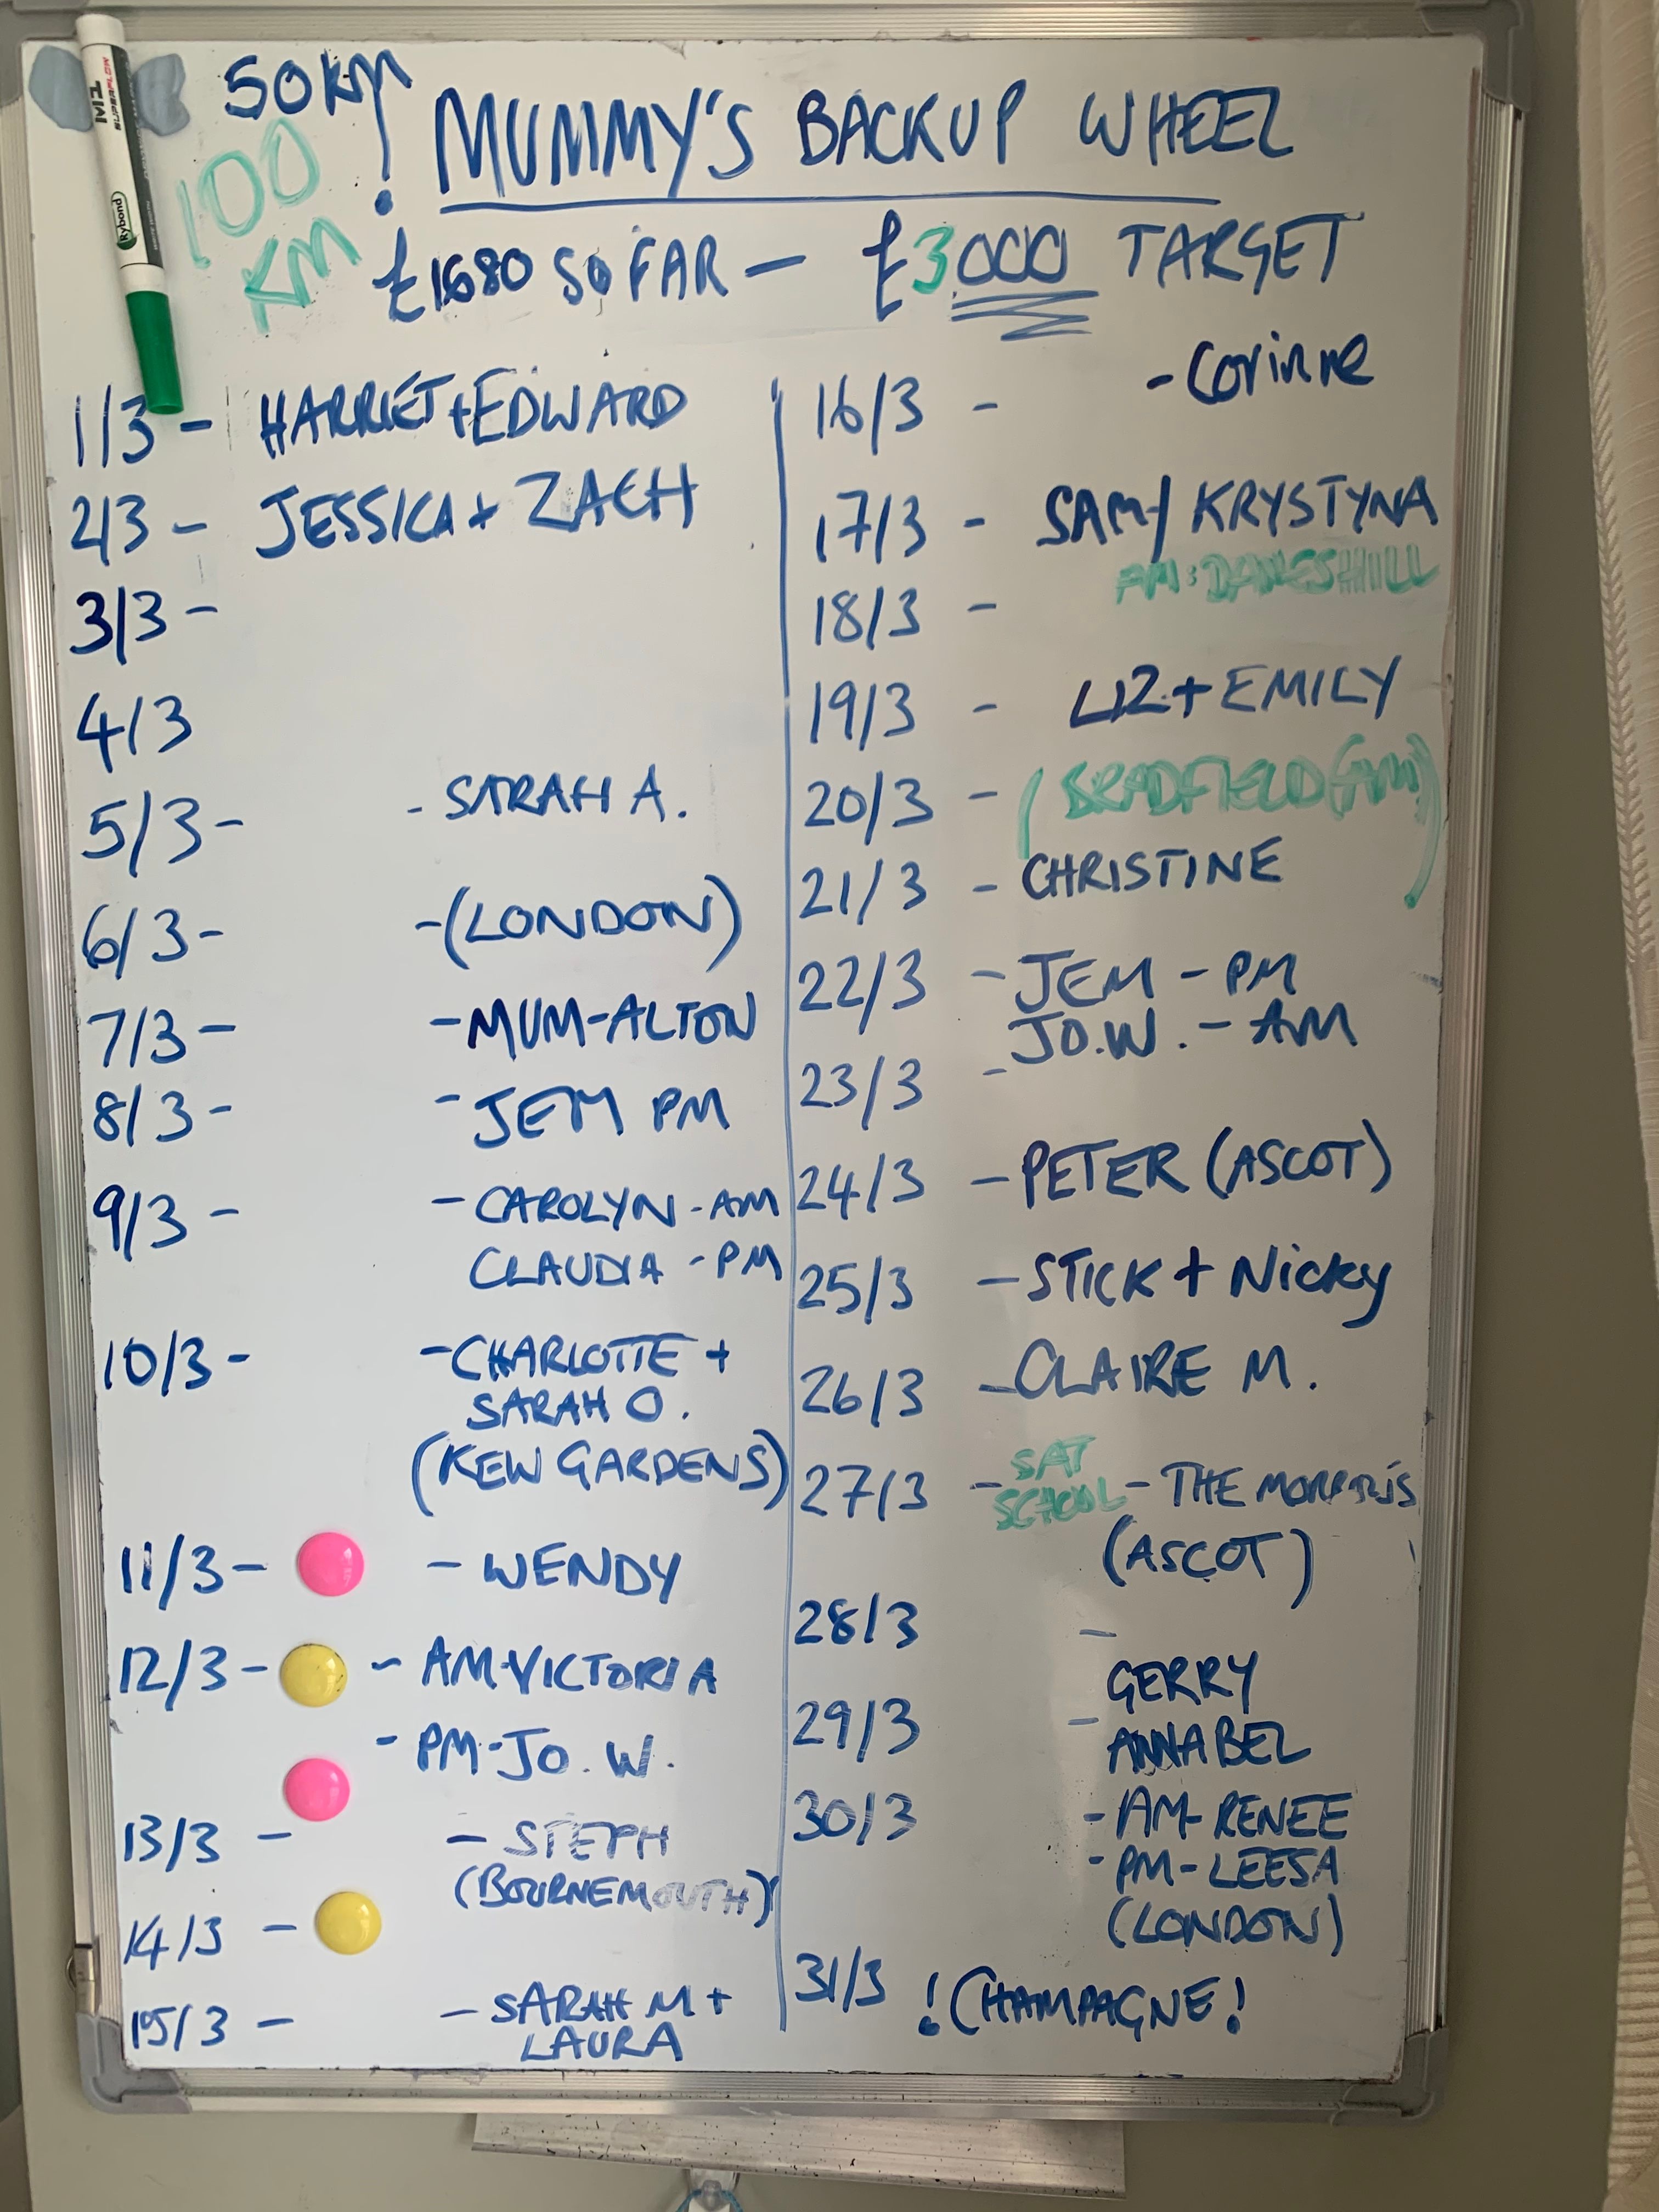 50KM!
100
KM
MUMMY'S BACKUP WHEEL
£1680 SO FAR - £3,000 TARGET
1/3 - HARRIET + EDWARD
2/3 - JESSICA + ZACH
3/3 -
4/3
5/3 - - SARAH A.
6/3 - - (LONDON)
7/3 - - MUM-ALTON
8/3 - - JEM PM
9/3 - - CAROLYN - AM
CLAUDIA - PM
10/3 - - CHARLOTTE +
SARAH O.
(KEW GARDENS)
11/3 - - WENDY
12/3 - - AM-VICTORIA
- PM-JO.W.
13/3 - - STEPH
(BOURNEMOUTH)
14/3 -
15/3 - - SARAH M +
LAURA
16/3 - - Corinne
17/3 - SAM/ KRYSTYNA
AM: DANESHILL
18/3 -
19/3 - LIZ + EMILY
20/3 - (BRADFIELD (AM))
21/3 - CHRISTINE
22/3 - JEM - PM
JO.W. - AM
23/3 -
24/3 - PETER (ASCOT)
25/3 - STICK + Nicky
26/3 - CLAIRE M.
27/3 - SAT SCHOOL - THE MORRIS'S
(ASCOT)
28/3 -
GERRY
29/3 - ANNABEL
30/3 - AM-RENEE
- PM-LEESA
(LONDON)
31/3 !CHAMPAGNE!
M1
SUPERFLOW
Rybond